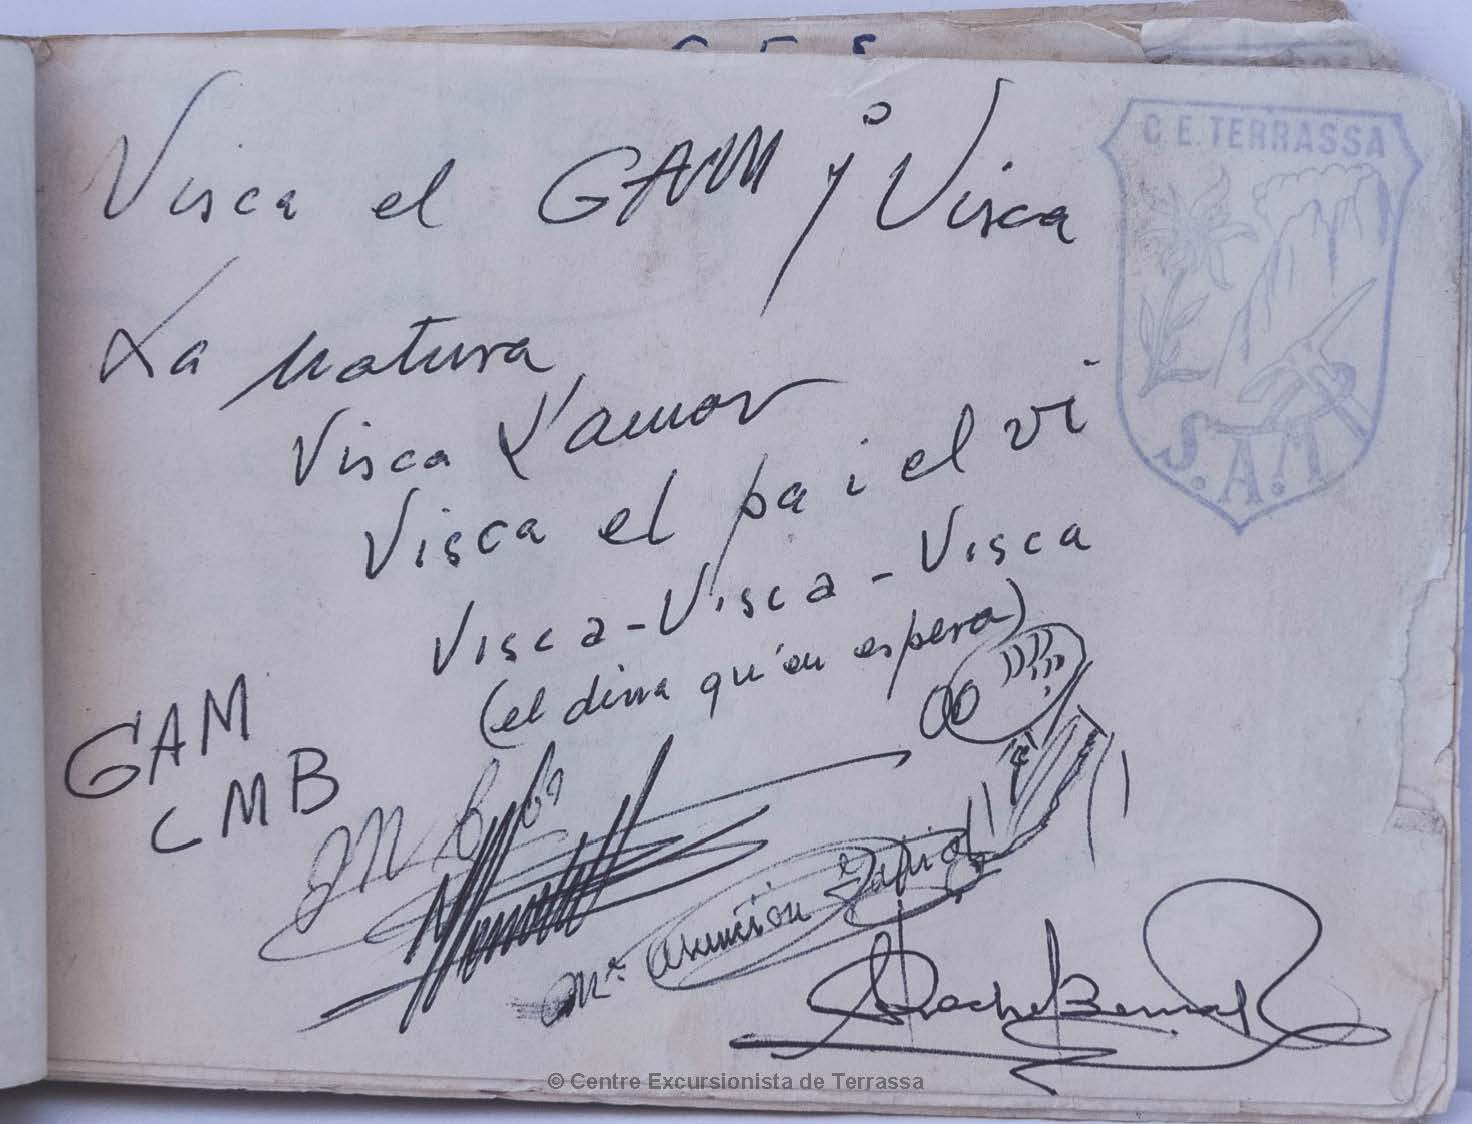 Visca el GAM y Visca
La natura
Visca L'amor
Visca el pa i el vi
Visca-Visca-Visca
(el dina qu'en espera)
GAM
CMB
Mª Asunción
Bernal
C. E. TERRASSA
S. A. T
© Centre Excursionista de Terrassa